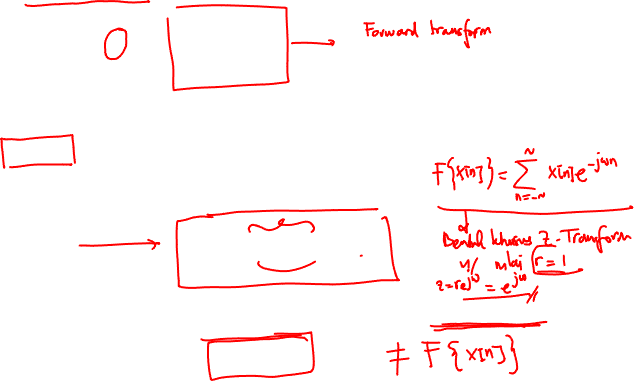 Forward transform
F{x[n]} = ∑ x[n] e^-jωn
n=-~
Bentuk khusus Z-Transform
u/ nilai r = 1
z=re^jω = e^jω
≠ F{x[n]}